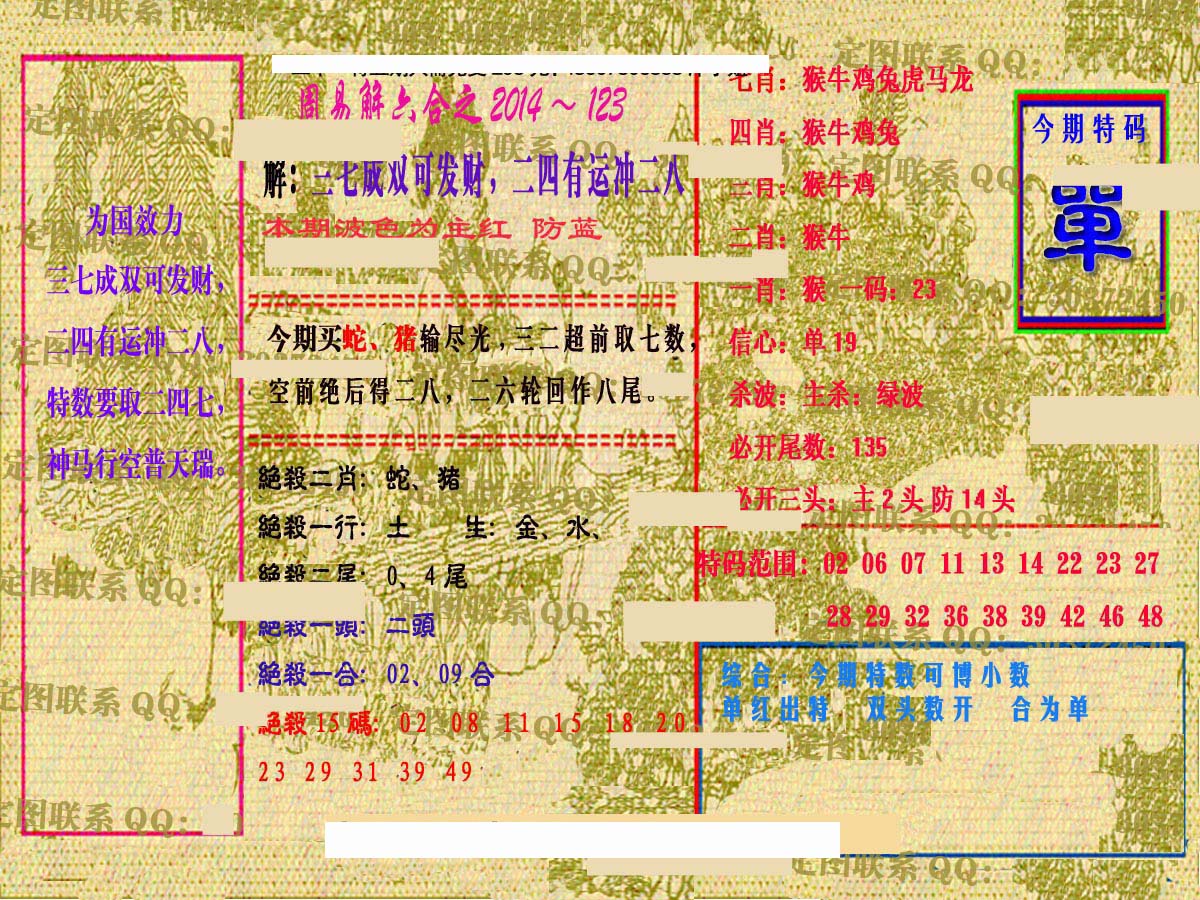 为国效力
三七成双可发财，
二四有运冲二八，
特数要取二四七，
神马行空普天瑞。
周易解六合之 2014～123
解：三七成双可发财，二四有运冲二八
本期波色为主红 防蓝
今期买蛇、猪输尽光，三二超前取七数，
空前绝后得二八，二六轮回作八尾。
絕殺二肖：蛇、猪
絕殺一行：土 生：金、水、
絕殺二尾：0、4尾
絕殺一頭：二頭
絕殺一合：02、09合
絕殺15碼：02 08 11 15 18 20
23 29 31 39 49
七肖：猴牛鸡兔虎马龙
四肖：猴牛鸡兔
三肖：猴牛鸡
二肖：猴牛
一肖：猴 一码：23
信心：单19
杀波：主杀：绿波
必开尾数：135
必开三头：主2头防14头
特码范围：02 06 07 11 13 14 22 23 27
28 29 32 36 38 39 42 46 48
今期特码
單
综合：今期特数可博小数
单红出特 双头数开 合为单
定图联系QQ：